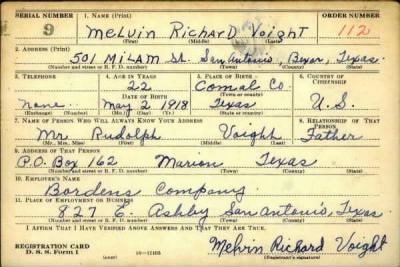 SERIAL NUMBER 1. NAME (Print) ORDER NUMBER
9 Melvin Richard Voight 112
(First) (Middle) (Last)
2. ADDRESS (Print)
501 MILAM St. San Antonio, Bexar, Texas
(Number and street or R. F. D. number) (Town) (County) (State)
3. TELEPHONE 4. AGE IN YEARS 5. PLACE OF BIRTH 6. COUNTRY OF CITIZENSHIP
22 Comal Co.
DATE OF BIRTH (Town or county)
None May 2 1918 Texas U.S.
(Exchange) (Number) (Mo.) (Day) (Yr.) (State or country)
7. NAME OF PERSON WHO WILL ALWAYS KNOW YOUR ADDRESS 8. RELATIONSHIP OF THAT PERSON
Mr. Rudolph Voight Father
(Mr., Mrs., Miss) (First) (Middle) (Last)
9. ADDRESS OF THAT PERSON
P.O. Box 162 Marion Texas
(Number and street or R. F. D. number) (Town) (County) (State)
10. EMPLOYER'S NAME
Bordens Company
11. PLACE OF EMPLOYMENT OR BUSINESS
827 E. Ashby San Antonio, Texas
(Number and street or R. F. D. number) (Town) (County) (State)
I AFFIRM THAT I HAVE VERIFIED ABOVE ANSWERS AND THAT THEY ARE TRUE.
REGISTRATION CARD Melvin Richard Voight
D. S. S. Form 1 (over) (Registrant's signature)